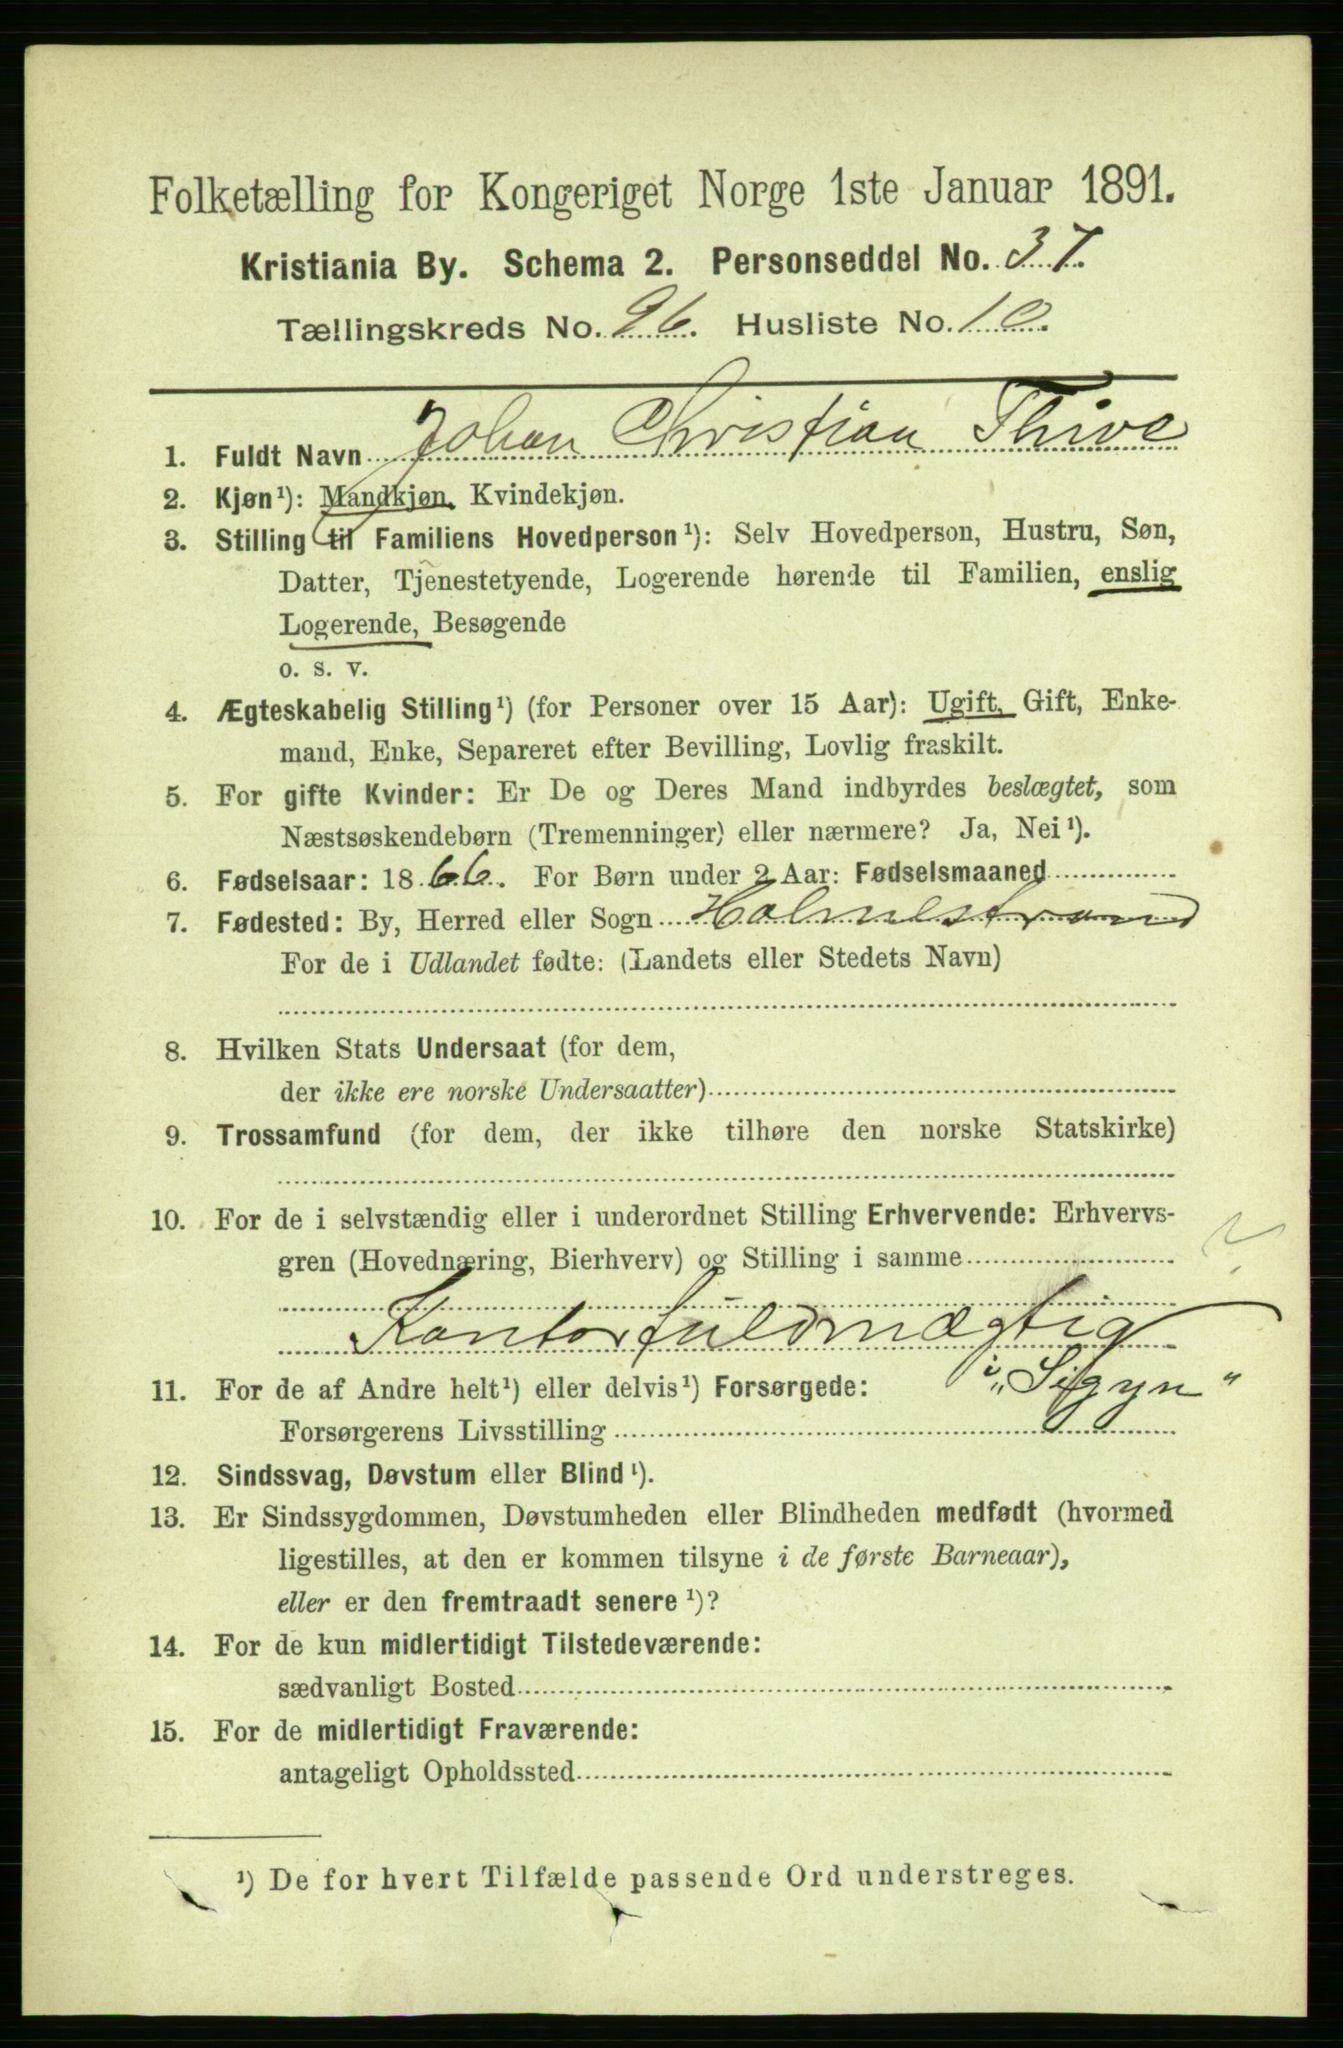 Folketælling for Kongeriget Norge 1ste Januar 1891.
Kristiania By. Schema 2. Personseddel No. 37.
Tællingskreds No. 96. Husliste No. 10.
1. Fuldt Navn Johan Christian Thive
2. Kjøn¹): Mandkjøn, Kvindekjøn.
3. Stilling til Familiens Hovedperson¹): Selv Hovedperson, Hustru, Søn,
Datter, Tjenestetyende, Logerende hørende til Familien, enslig
Logerende, Besøgende
o. s. v.
4. Ægteskabelig Stilling¹) (for Personer over 15 Aar): Ugift, Gift, Enke-
mand, Enke, Separeret efter Bevilling, Lovlig fraskilt.
5. For gifte Kvinder: Er De og Deres Mand indbyrdes beslægtet, som
Næstsøskendebørn (Tremenninger) eller nærmere? Ja, Nei¹).
6. Fødselsaar: 1866. For Børn under 2 Aar: Fødselsmaaned
7. Fødested: By, Herred eller Sogn Holmestrand
For de i Udlandet fødte: (Landets eller Stedets Navn)
8. Hvilken Stats Undersaat (for dem,
der ikke ere norske Undersaatter)
9. Trossamfund (for dem, der ikke tilhøre den norske Statskirke)
10. For de i selvstændig eller i underordnet Stilling Erhvervende: Erhvervs-
gren (Hovednæring, Bierhverv) og Stilling i samme
Kontorfuldmægtig
i „Sigyn"
11. For de af Andre helt¹) eller delvis¹) Forsørgede:
Forsørgerens Livsstilling
12. Sindssvag, Døvstum eller Blind¹).
13. Er Sindssygdommen, Døvstumheden eller Blindheden medfødt (hvormed
ligestilles, at den er kommen tilsyne i de første Barneaar),
eller er den fremtraadt senere¹)?
14. For de kun midlertidigt Tilstedeværende:
sædvanligt Bosted
15. For de midlertidigt Fraværende:
antageligt Opholdssted
¹) De for hvert Tilfælde passende Ord understreges.